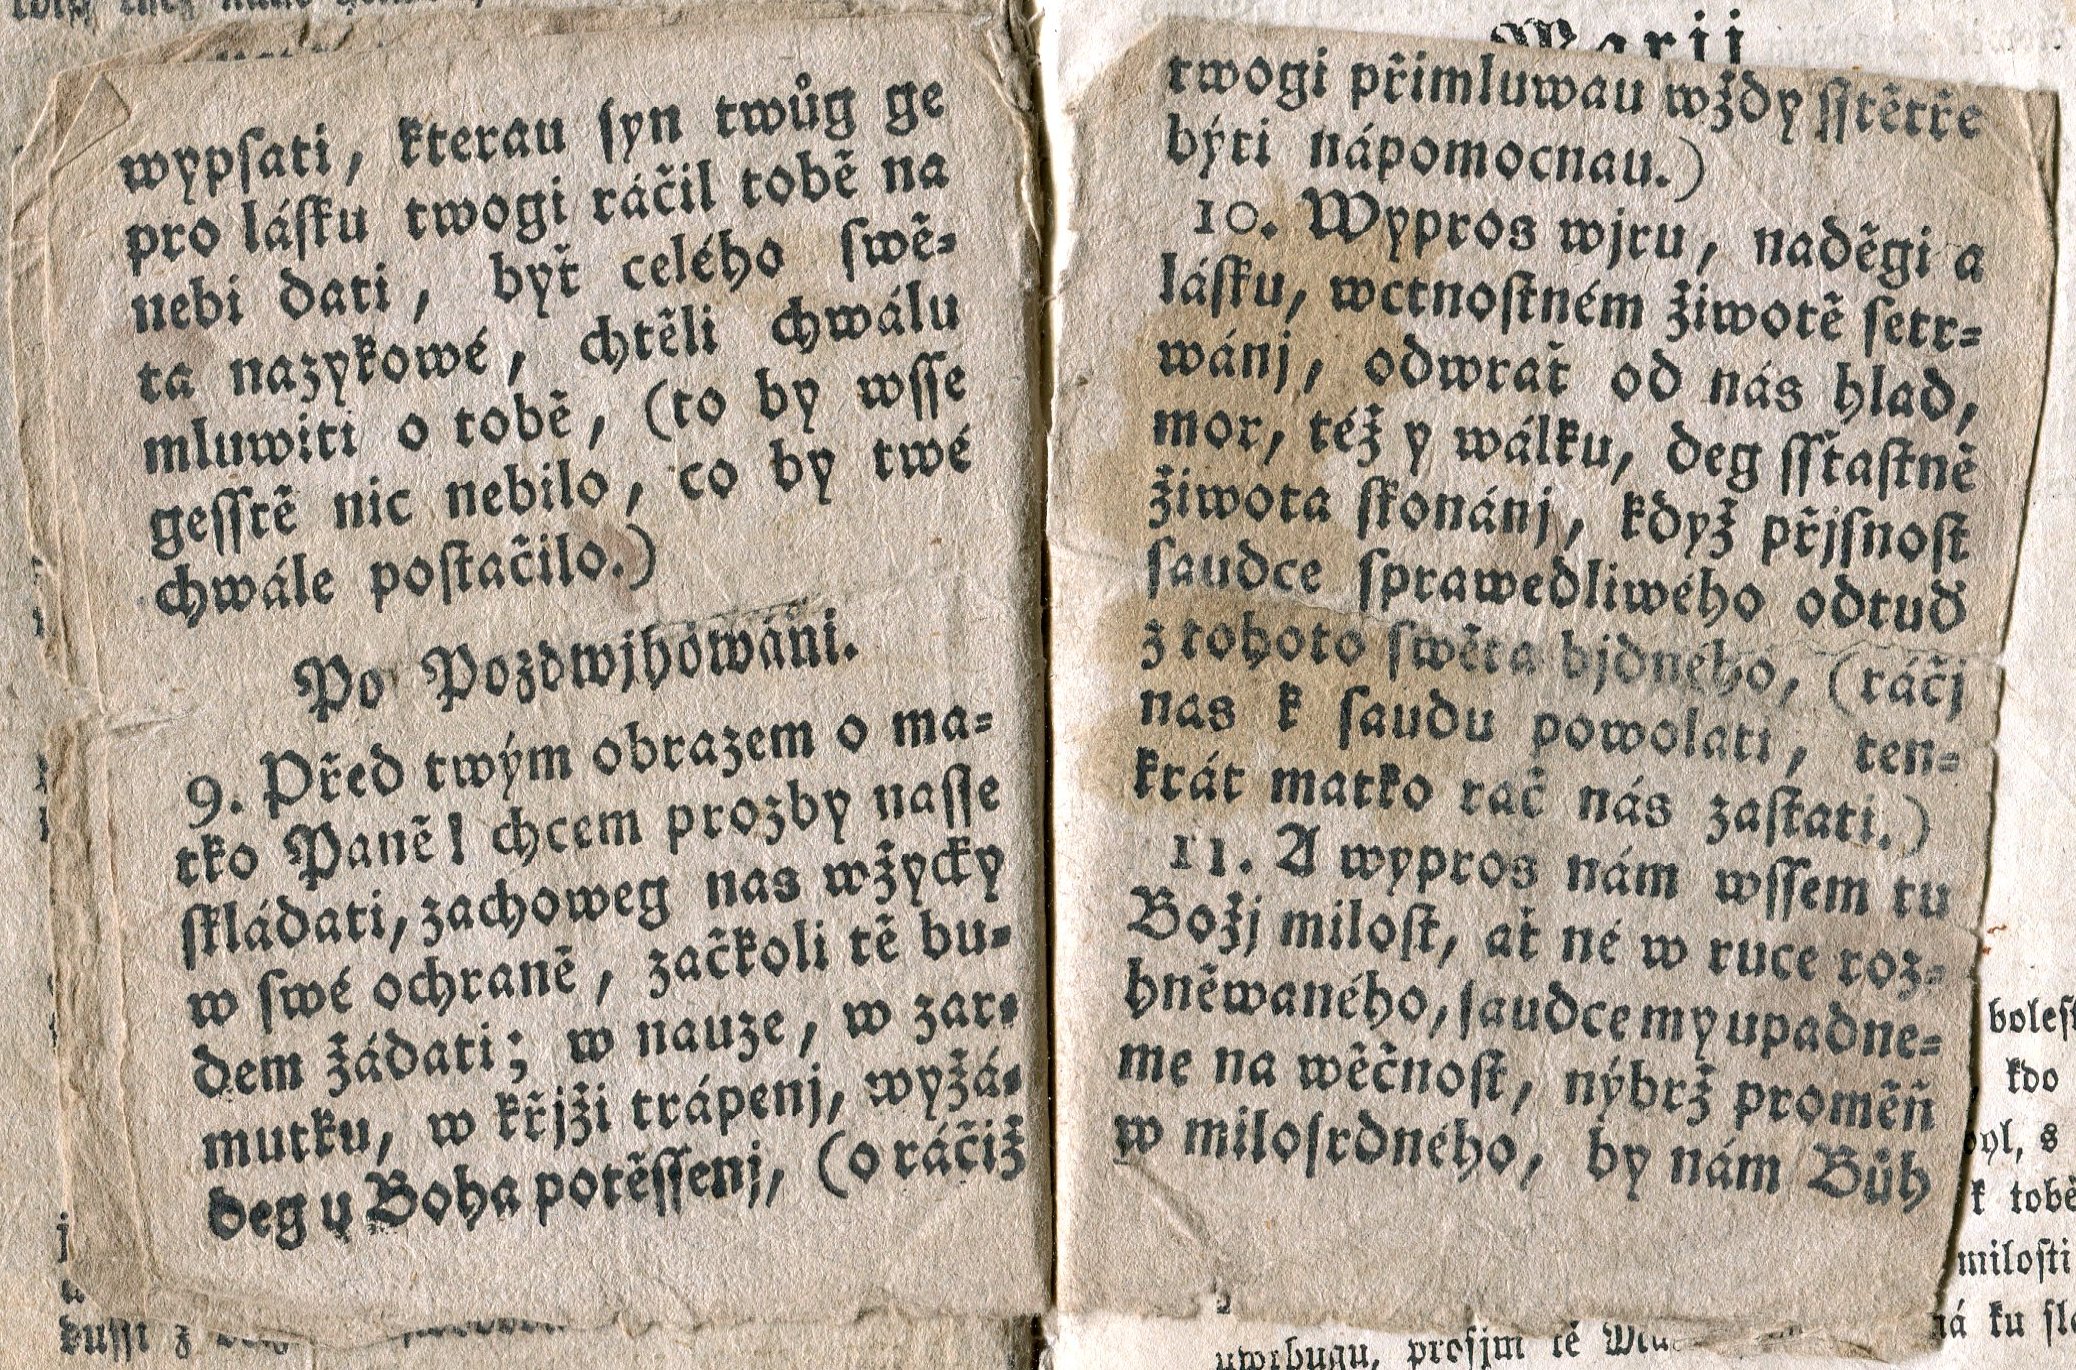 wypsati, kterau syn twůg ge
pro lásku twogi ráčil tobě na
nebi dati, byť celého swě-
ta nazykowé, chtěli chwálu
mluwiti o tobě, (to by wsse
gesstě nic nebilo, co by twé
chwále postačilo.)
Po Pozdwjhowáni.
9. Před twým obrazem o ma-
tko Paně! chcem prozby nasse
skládati, zachoweg nas wžycky
w swé ochraně, začkoli tě bu-
dem žádati; w nauze, w zar-
mutku, w křjži trápenj, wyžá-
deg u Boha potěssenj, (o ráčiž
Marij
twogi přimluwau wždy sstětře
býti nápomocnau.)
10. Wypros wjru, naděgi a
lásku, wctnostném žiwotě setr-
wánj, odwrať od nás hlad,
mor, též y wálku, deg ssťastně
žiwota skonánj, když přjsnost
saudce sprawedliwého odtuď
z tohoto swěta bjdného, (ráčj
nas k saudu powolati, ten-
krát matko rač nás zastati.)
11. A wypros nám wssem tu
Božj milost, ať né w ruce roz-
hněwaného, saudce my upadne-
me na wěčnost, nýbrž proměň
w milosrdného, by nám Bůh
bolest
kdo
byl, s
k tobě
milosti
ná ku
uwrbugu, prosjm tě